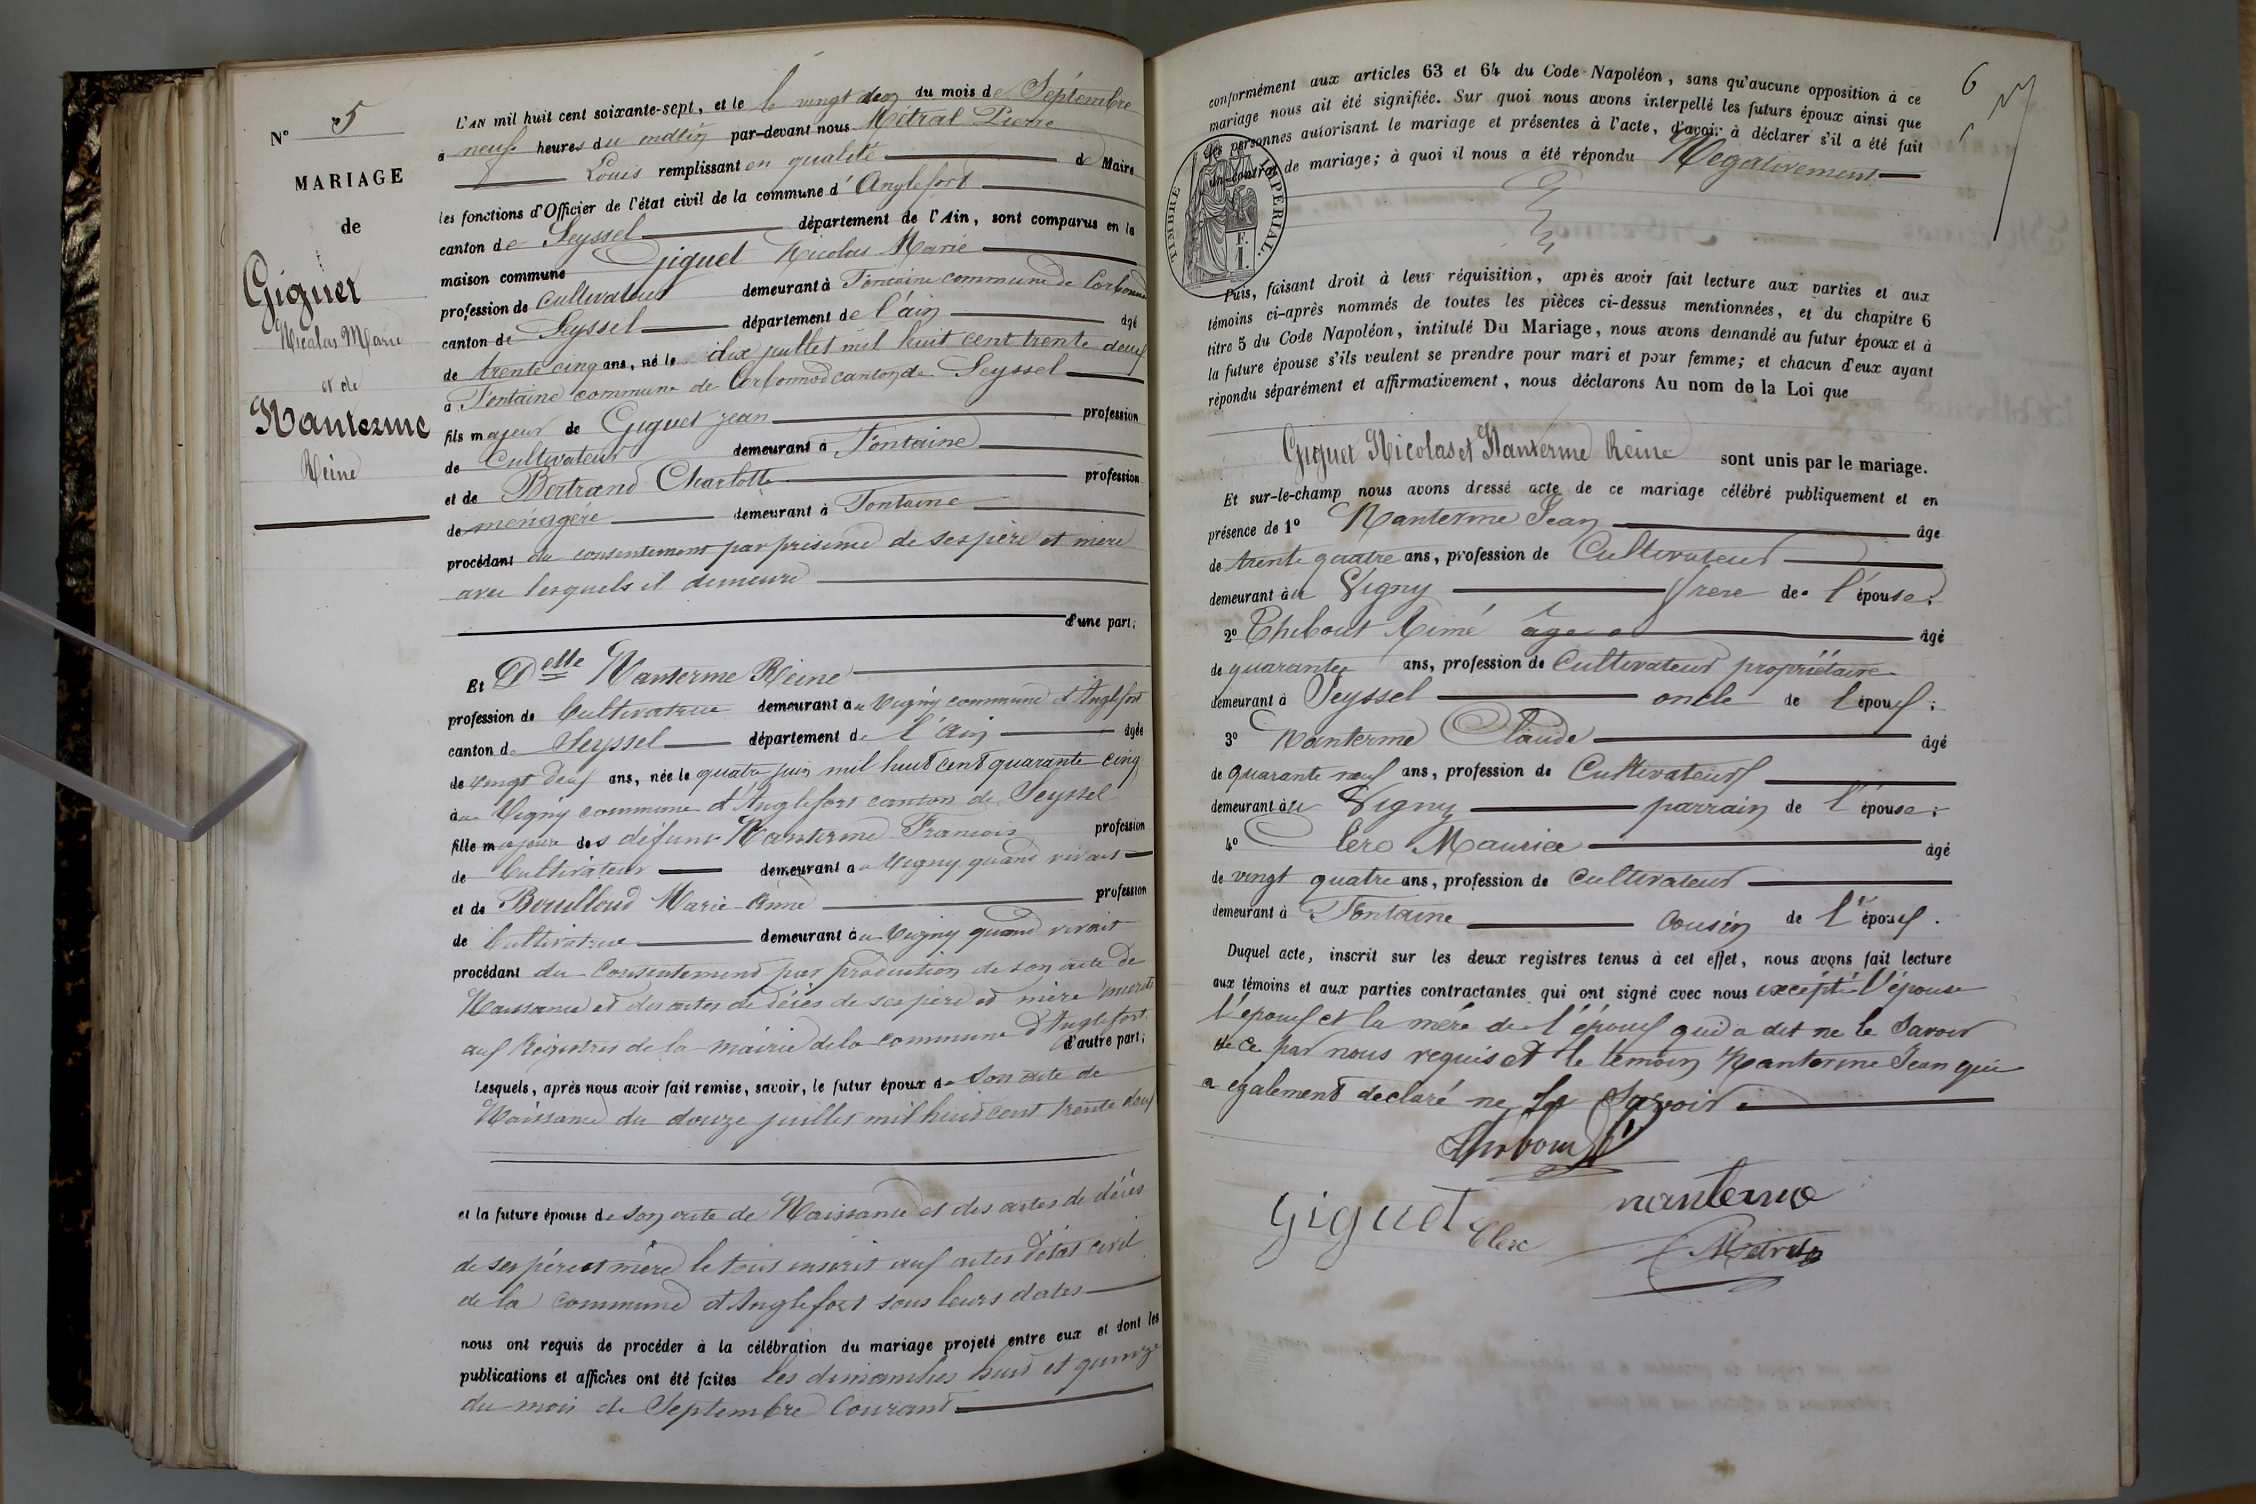 N° 5
MARIAGE
de
Giguet
Nicolas Marie
et de
Nanterme
Reine
L'AN mil huit cent soixante-sept, et le le vingt deux du mois de Séptembre
à neuf heures du matin par-devant nous Métral Pierre
Louis remplissant en qualité de Maire
les fonctions d'Officier de l'état civil de la commune d'Anglefort
canton de Seyssel département de l'Ain, sont comparus en la
maison commune Giguet Nicolas Marie
profession de Cultivateur demeurant à Fontaine commune de Corbonod
canton de Seyssel département de l'ain âgé
de trente cinq ans, né le dix juillet mil huit cent trente deux
à Fontaine commune de Corbonod canton de Seyssel
fils majeur de Giguet jean profession
de Cultivateur demeurant à Fontaine
et de Bertrand Charlotte profession
de ménagère demeurant à Fontaine
procédant du consentement par présence de ses père et mère
avec lesquels il demeure
d'une part;
Et Delle Nanterme Reine
profession de Cultivatrice demeurant au Vigny commune d'Anglefort
canton de Seyssel département de l'Ain âgée
de vingt deux ans, née le quatre juin mil huit cent quarante cinq
au Vigny commune d'Anglefort canton de Seyssel
fille majeure des défunt Nanterme Francois profession
de Cultivateur demeurant au Vigny quand vivait
et de Bouilloud Marie Anne profession
de Cultivatrice demeurant au Vigny quand vivait
procédant du Consentement par production de son acte de
Naissance et des actes de décès de ses père et mère inscrits
aux Régistres de la mairie de la commune d'Anglefort
d'autre part;
Lesquels, après nous avoir fait remise, savoir, le futur époux de son acte de
Naissance du douze juillet mil huit cent trente deux
et la future épouse de son acte de Naissance et des actes de décès
de ses père et mère le tout inscrit aux actes d'état civil
de la commune d'Anglefort sous leurs dates
nous ont requis de procéder à la célébration du mariage projeté entre eux et dont les
publications et affiches ont été faites les dimanches huit et quinze
du mois de Septembre Courant
6
conformément aux articles 63 et 64 du Code-Napoléon, sans qu'aucune opposition à ce
mariage nous ait été signifiée. Sur quoi nous avons interpellé les futurs époux ainsi que
les personnes autorisant le mariage et présentes à l'acte, d'avoir à déclarer s'il a été fait
un contrat de mariage; à quoi il nous a été répondu Négativement
TIMBRE IMPERIAL.
Puis, faisant droit à leur réquisition, après avoir fait lecture aux parties et aux
témoins ci-après nommés de toutes les pièces ci-dessus mentionnées, et du chapitre 6
titre 5 du Code Napoléon, intitulé Du Mariage, nous avons demandé au futur époux et à
la future épouse s'ils veulent se prendre pour mari et pour femme; et chacun d'eux ayant
répondu séparément et affirmativement, nous déclarons Au nom de la Loi que
Giguet Nicolas et Nanterme Reine sont unis par le mariage.
Et sur-le-champ nous avons dressé acte de ce mariage célébré publiquement et en
présence de 1° Nanterme Jean âgé
de trente quatre ans, profession de Cultivateur
demeurant au Vigny frere de l'épouse;
2° Thibout Aimé âgé
de quarante ans, profession de Cultivateur propriétaire
demeurant à Seyssel oncle de l'époux;
3° Nanterme Claude âgé
de quarante neuf ans, profession de Cultivateur
demeurant au Vigny parrain de l'épouse;
4° Clerc Maurice âgé
de vingt quatre ans, profession de Cultivateur
demeurant à Fontaine Cousin de l'époux.
Duquel acte, inscrit sur les deux registres tenus à cet effet, nous avons fait lecture
aux témoins et aux parties contractantes qui ont signé avec nous excépté l'épouse
l'époux et la mére de l'époux qui a dit ne le savoir
de ce par nous requis et le témoin Nanterme Jean qui
a également declaré ne le Savoir
Giguet
Clerc
nanterme
Métral